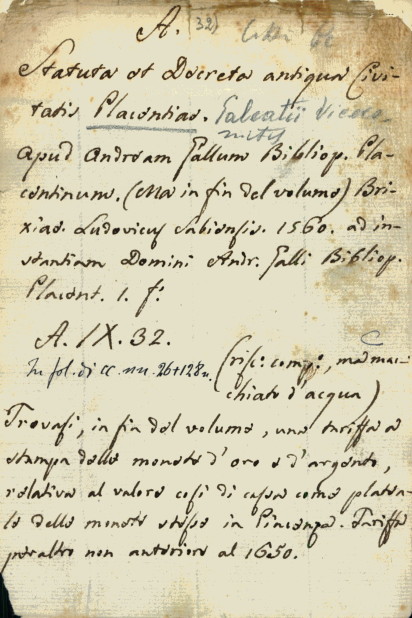 A. 32)
Statuta et Decreta antiqua Civi-
tatis Placentiae. Galeatii Viceco-
mitis
apud Andream Gallum Bibliop. Pla-
centinum. (Ma in fin del volume) Bri-
xiae. Ludovicus Sabiensis. 1560. ad in-
stantiam Domini Andr. Galli Bibliop.
Placent. 1. f.
A. IX. 32.
In fol. di cc. nn. 26+128 n.
(risc: comp:, ma mac-
chiato d'acqua)
Trovasi, in fin del volume, una tariffa a
stampa delle monete d'oro e d'argento,
relativa al valore così di cassa come platea-
le delle monete stesse in Piacenza. Tariffa
peraltro non anteriore al 1650.